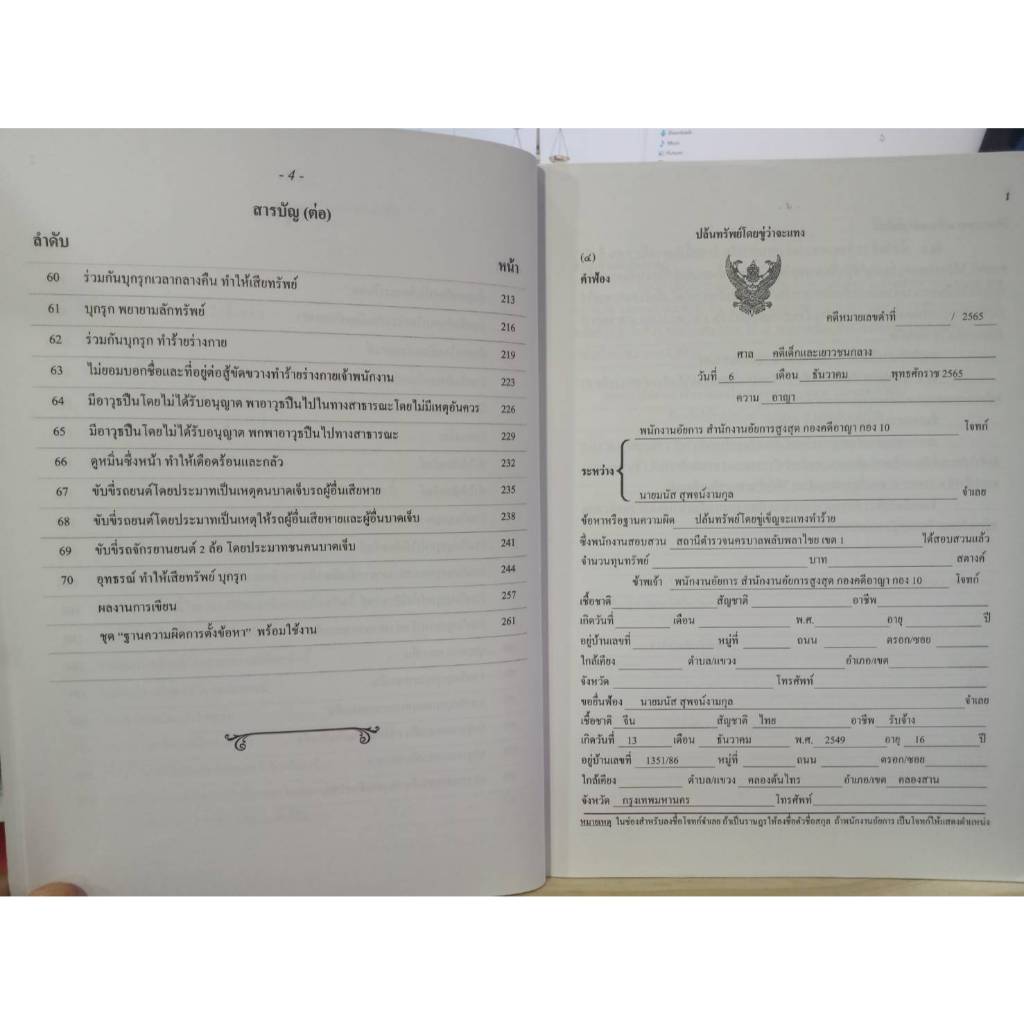 - 4 -
สารบัญ (ต่อ)
ลำดับ
หน้า
60 ร่วมกันบุกรุกเวลากลางคืน ทำให้เสียทรัพย์ 213
61 บุกรุก พยายามลักทรัพย์ 216
62 ร่วมกันบุกรุก ทำร้ายร่างกาย 219
63 ไม่ยอมบอกชื่อและที่อยู่ต่อสู้ขัดขวางทำร้ายร่างกายเจ้าพนักงาน 223
64 มีอาวุธปืนโดยไม่ได้รับอนุญาต พาอาวุธปืนไปในทางสาธารณะโดยไม่มีเหตุอันควร 226
65 มีอาวุธปืนโดยไม่ได้รับอนุญาต พกพาอาวุธปืนไปทางสาธารณะ 229
66 ดูหมิ่นซึ่งหน้า ทำให้เดือดร้อนและกลัว 232
67 ขับขี่รถยนต์โดยประมาทเป็นเหตุคนบาดเจ็บรถผู้อื่นเสียหาย 235
68 ขับขี่รถยนต์โดยประมาทเป็นเหตุให้รถผู้อื่นเสียหายและผู้อื่นบาดเจ็บ 238
69 ขับขี่รถจักรยานยนต์ 2 ล้อ โดยประมาทชนคนบาดเจ็บ 241
70 อุทธรณ์ ทำให้เสียทรัพย์ บุกรุก 244
ผลงานการเขียน 257
ชุด “ฐานความผิดการตั้งข้อหา” พร้อมใช้งาน 261
1
ปล้นทรัพย์โดยขู่ว่าจะแทง
(๔)
คำฟ้อง
คดีหมายเลขดำที่ / 2565
ศาล คดีเด็กและเยาวชนกลาง
วันที่ 6 เดือน ธันวาคม พุทธศักราช 2565
ความ อาญา
พนักงานอัยการ สำนักงานอัยการสูงสุด กองคดีอาญา กอง 10 โจทก์
ระหว่าง
นายมนัส สุพจน์งามกุล จำเลย
ข้อหาหรือฐานความผิด ปล้นทรัพย์โดยขู่เข็ญจะแทงทำร้าย
ซึ่งพนักงานสอบสวน สถานีตำรวจนครบาลพลับพลาไชย เขต 1 ได้สอบสวนแล้ว
จำนวนทุนทรัพย์ บาท สตางค์
ข้าพเจ้า พนักงานอัยการ สำนักงานอัยการสูงสุด กองคดีอาญา กอง 10 โจทก์
เชื้อชาติ สัญชาติ อาชีพ
เกิดวันที่ เดือน พ.ศ. อายุ ปี
อยู่บ้านเลขที่ หมู่ที่ ถนน ตรอก/ซอย
ใกล้เคียง ตำบล/แขวง อำเภอ/เขต
จังหวัด โทรศัพท์
ขอยื่นฟ้อง นายมนัส สุพจน์งามกุล จำเลย
เชื้อชาติ จีน สัญชาติ ไทย อาชีพ รับจ้าง
เกิดวันที่ 13 เดือน ธันวาคม พ.ศ. 2549 อายุ 16 ปี
อยู่บ้านเลขที่ 1351/86 หมู่ที่ ถนน ตรอก/ซอย
ใกล้เคียง ตำบล/แขวง คลองต้นไทร อำเภอ/เขต คลองสาน
จังหวัด กรุงเทพมหานคร โทรศัพท์
หมายเหตุ ในช่องสำหรับลงชื่อโจทก์จำเลย ถ้าเป็นราษฎรให้ลงชื่อตัวชื่อสกุล ถ้าพนักงานอัยการ เป็นโจทก์ให้แสดงตำแหน่ง